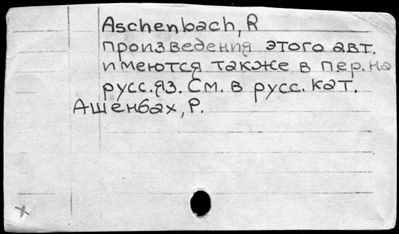 Aschenbach, R
произведения этого авт.
имеются также в пер. на
русс. яз. См. в русс. кат.
Ашенбах, Р.